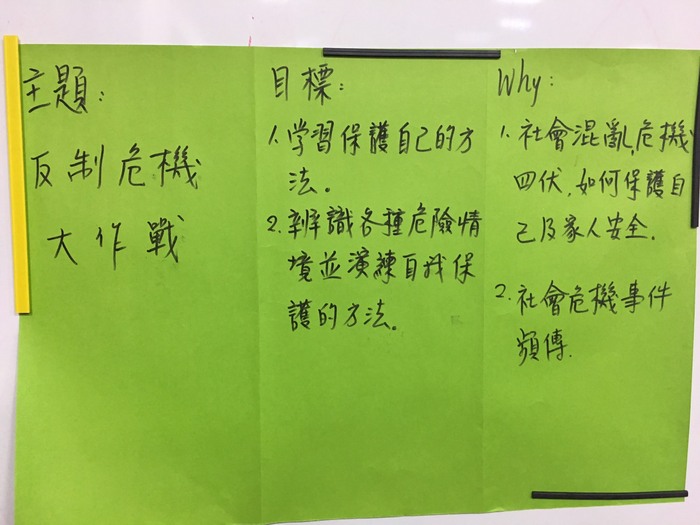 主題:
反制危機
大作戰
目標:
1. 学習保護自己的方
法。
2. 辨識各種危險情
境並演練自我保
護的方法。
Why:
1. 社會混亂,危機
四伏,如何保護自
己及家人安全.
2. 社會危機事件
頻傳.